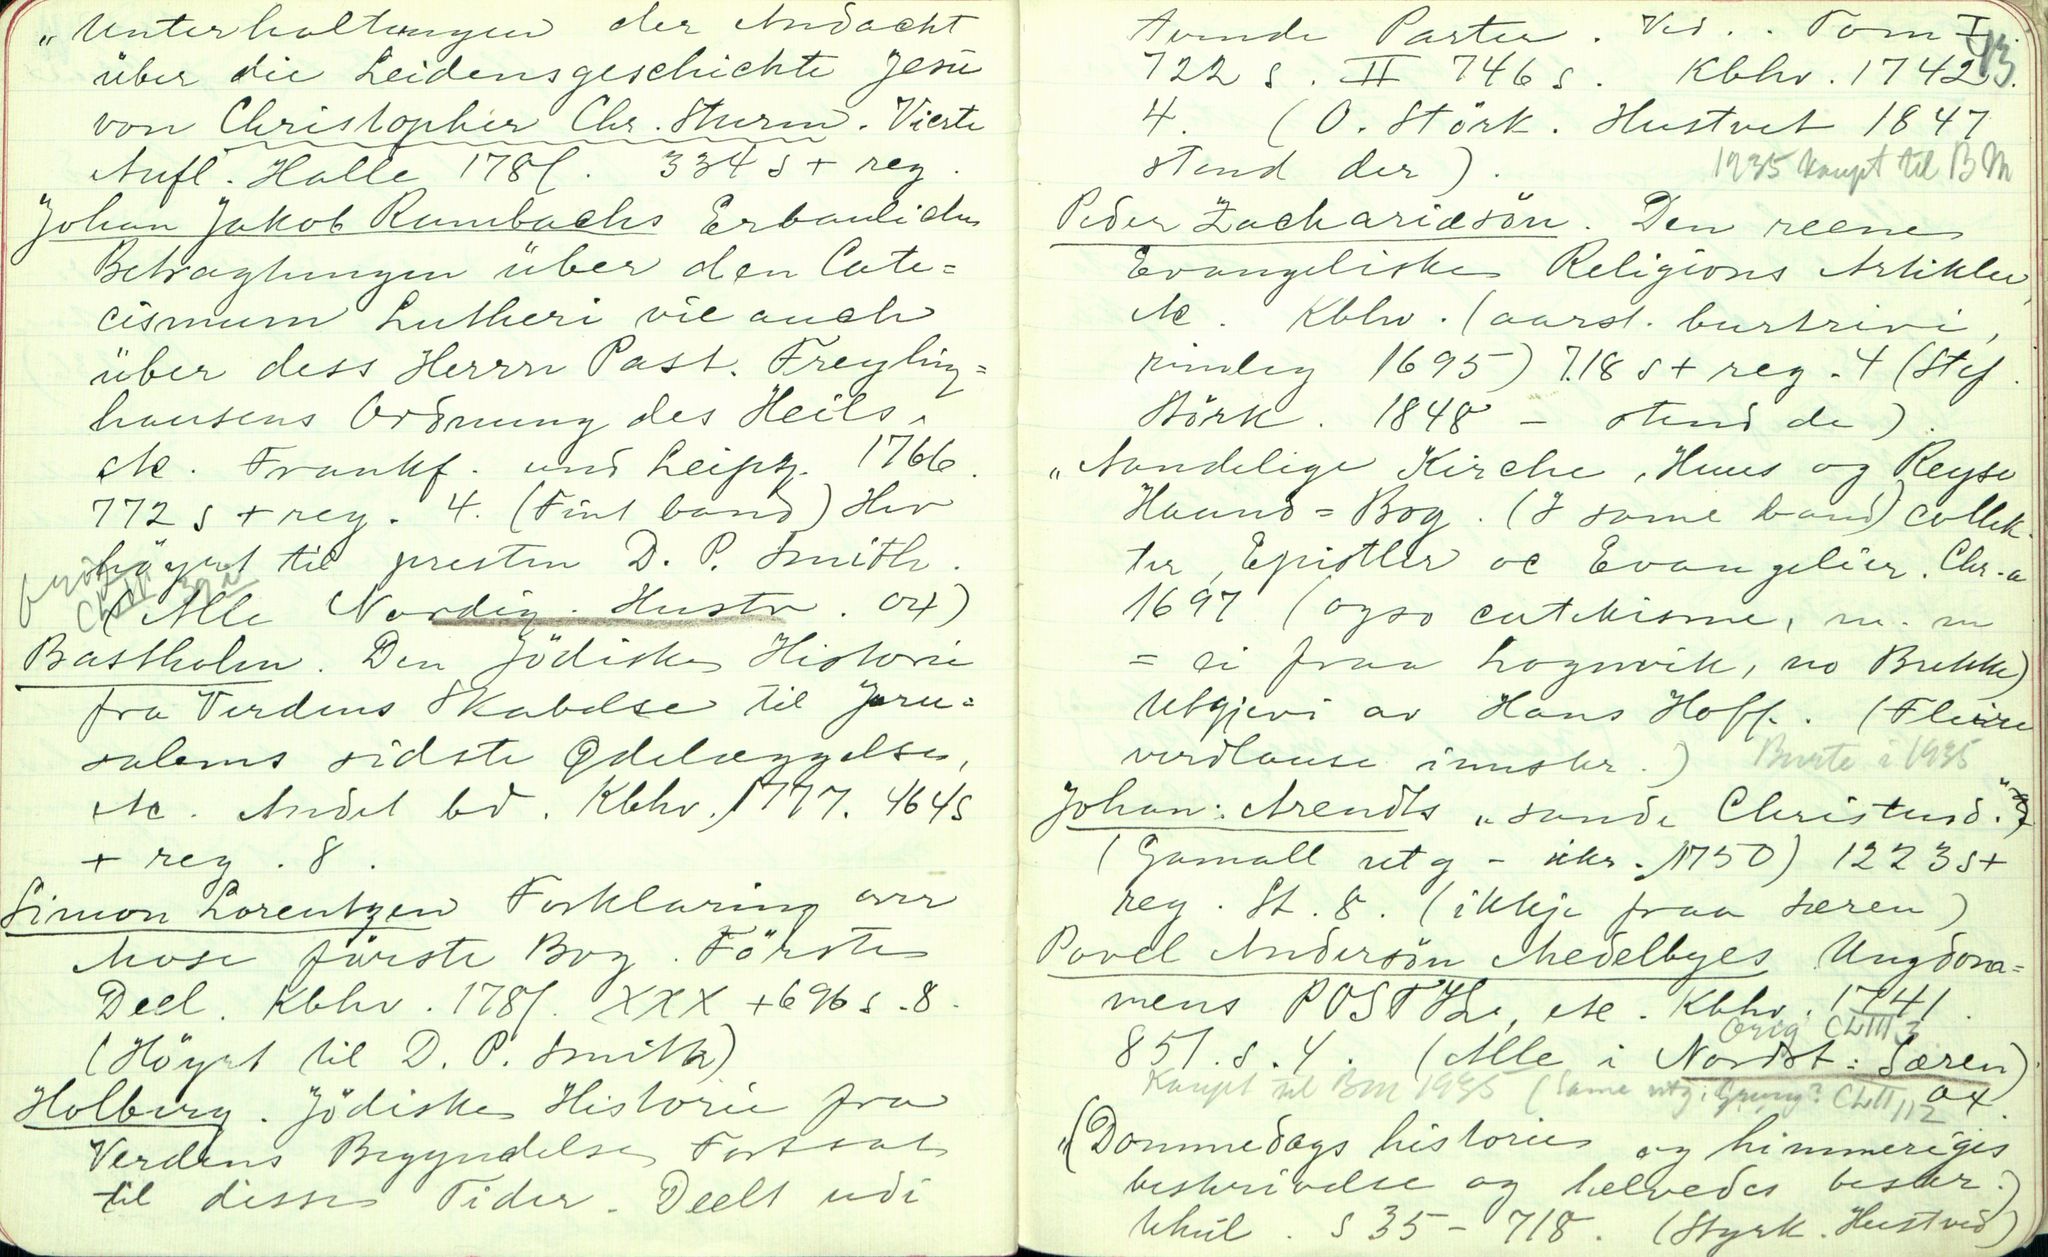 „Unterhaltungen der Andacht
über die Leidensgeschichte Jesu
von Christopher Chr. Sturm. Vierte
Aufl. Halle 1781. 334 s + reg.
Johan Jakob Rambachs Erbauliche
Betragtungen über den Cate=
cismum Lutheri vie auch
über dess Herrn Past. Freyling=
hausens Ordnung des Heils,
etc. Frankf. und Leipzg. 1766.
772 s + reg. 4. (Fint band) Hev
höyrt til presten D. P. Smith.
(Alle Nordig. Hustv. 04)
Bastholm. Den Jödiske Historie
fra Verdens Skabelse til Jeru=
salems sidste Ødelæggelse,
etc. Andet bd. Kbhv. 1777. 464 s
+ reg. 8.
Simon Lorentzen Forklaring over
Mose förste Bog. Förste
Deel. Kbhv. 1781. XXX + 696 s. 8.
(Höyrt til D. P. Smith)
Holberg. Jödiske Historie fra
Verdens Begyndelse, Fortsat
til disse Tider. Deelt udi
tvende Parter. Ved.. Tom I.
13
722 s. II 746 s. Kbhv. 1742.
4. (O. Störk. Hustvet 1847
stend der).
1935 Kaupt til BM
Peder Zachariæsön. Den reene
Evangeliske Religions Artikler,
etc. Kbhv. (aarst. burtrivi,
rimleg 1695) 718 s + reg. 4 (Stef.
Störk. 1848 - stend de).
„Aandelige Kirche, Huus og Reyse
Haand=Bog. (I same band) collek-
ter, Epistler oc Evangelier. Chr-a
1697 (ogso catekisme, m. m
= ei fraa Lognvik, no Brekke)
Utgjevi av Hans Hoff. (Fleire
verdlause innskr.)
Burte i 1935
Johan: Arendts „sande Christend."
(Gamall utg - ikr. 1750) 1223 s +
reg. St. 8. (ikkje fraa Særen)
Povel Andersön Medelbyes Ungdom=
mens POSTIL, etc. Kbhv. 1741.
Orig CLIII 3
851. s. 4. (Alle i Nordst: Særen)
04.
Kaupt til BM 1935 (Same utg. i Grung? CLII 112
„(Dommedags historie og himmeriges
beskrivelse og helvedes beskr.)
Uheil. s 35 - 718. (Styrk. Hustveit)